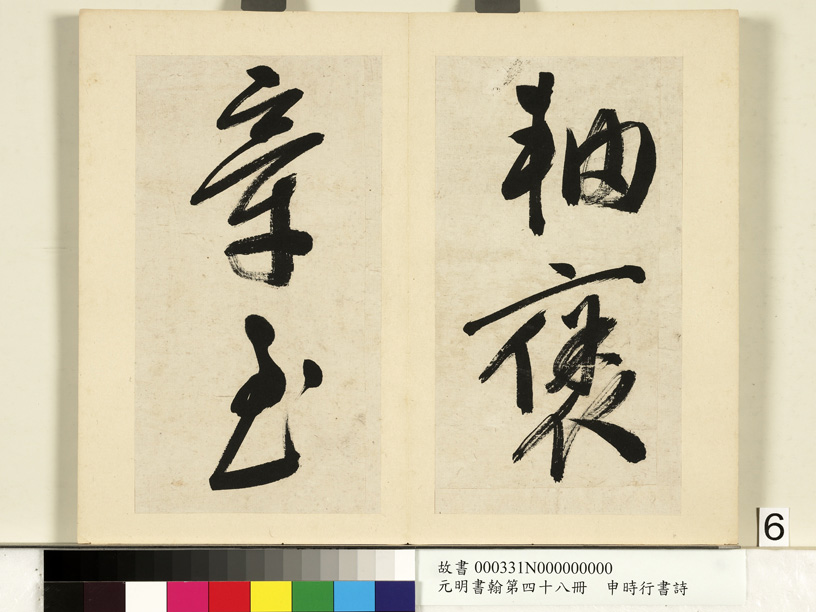 軸褒
章
6
故書 000331N000000000
元明書翰第四十八冊 申時行書詩